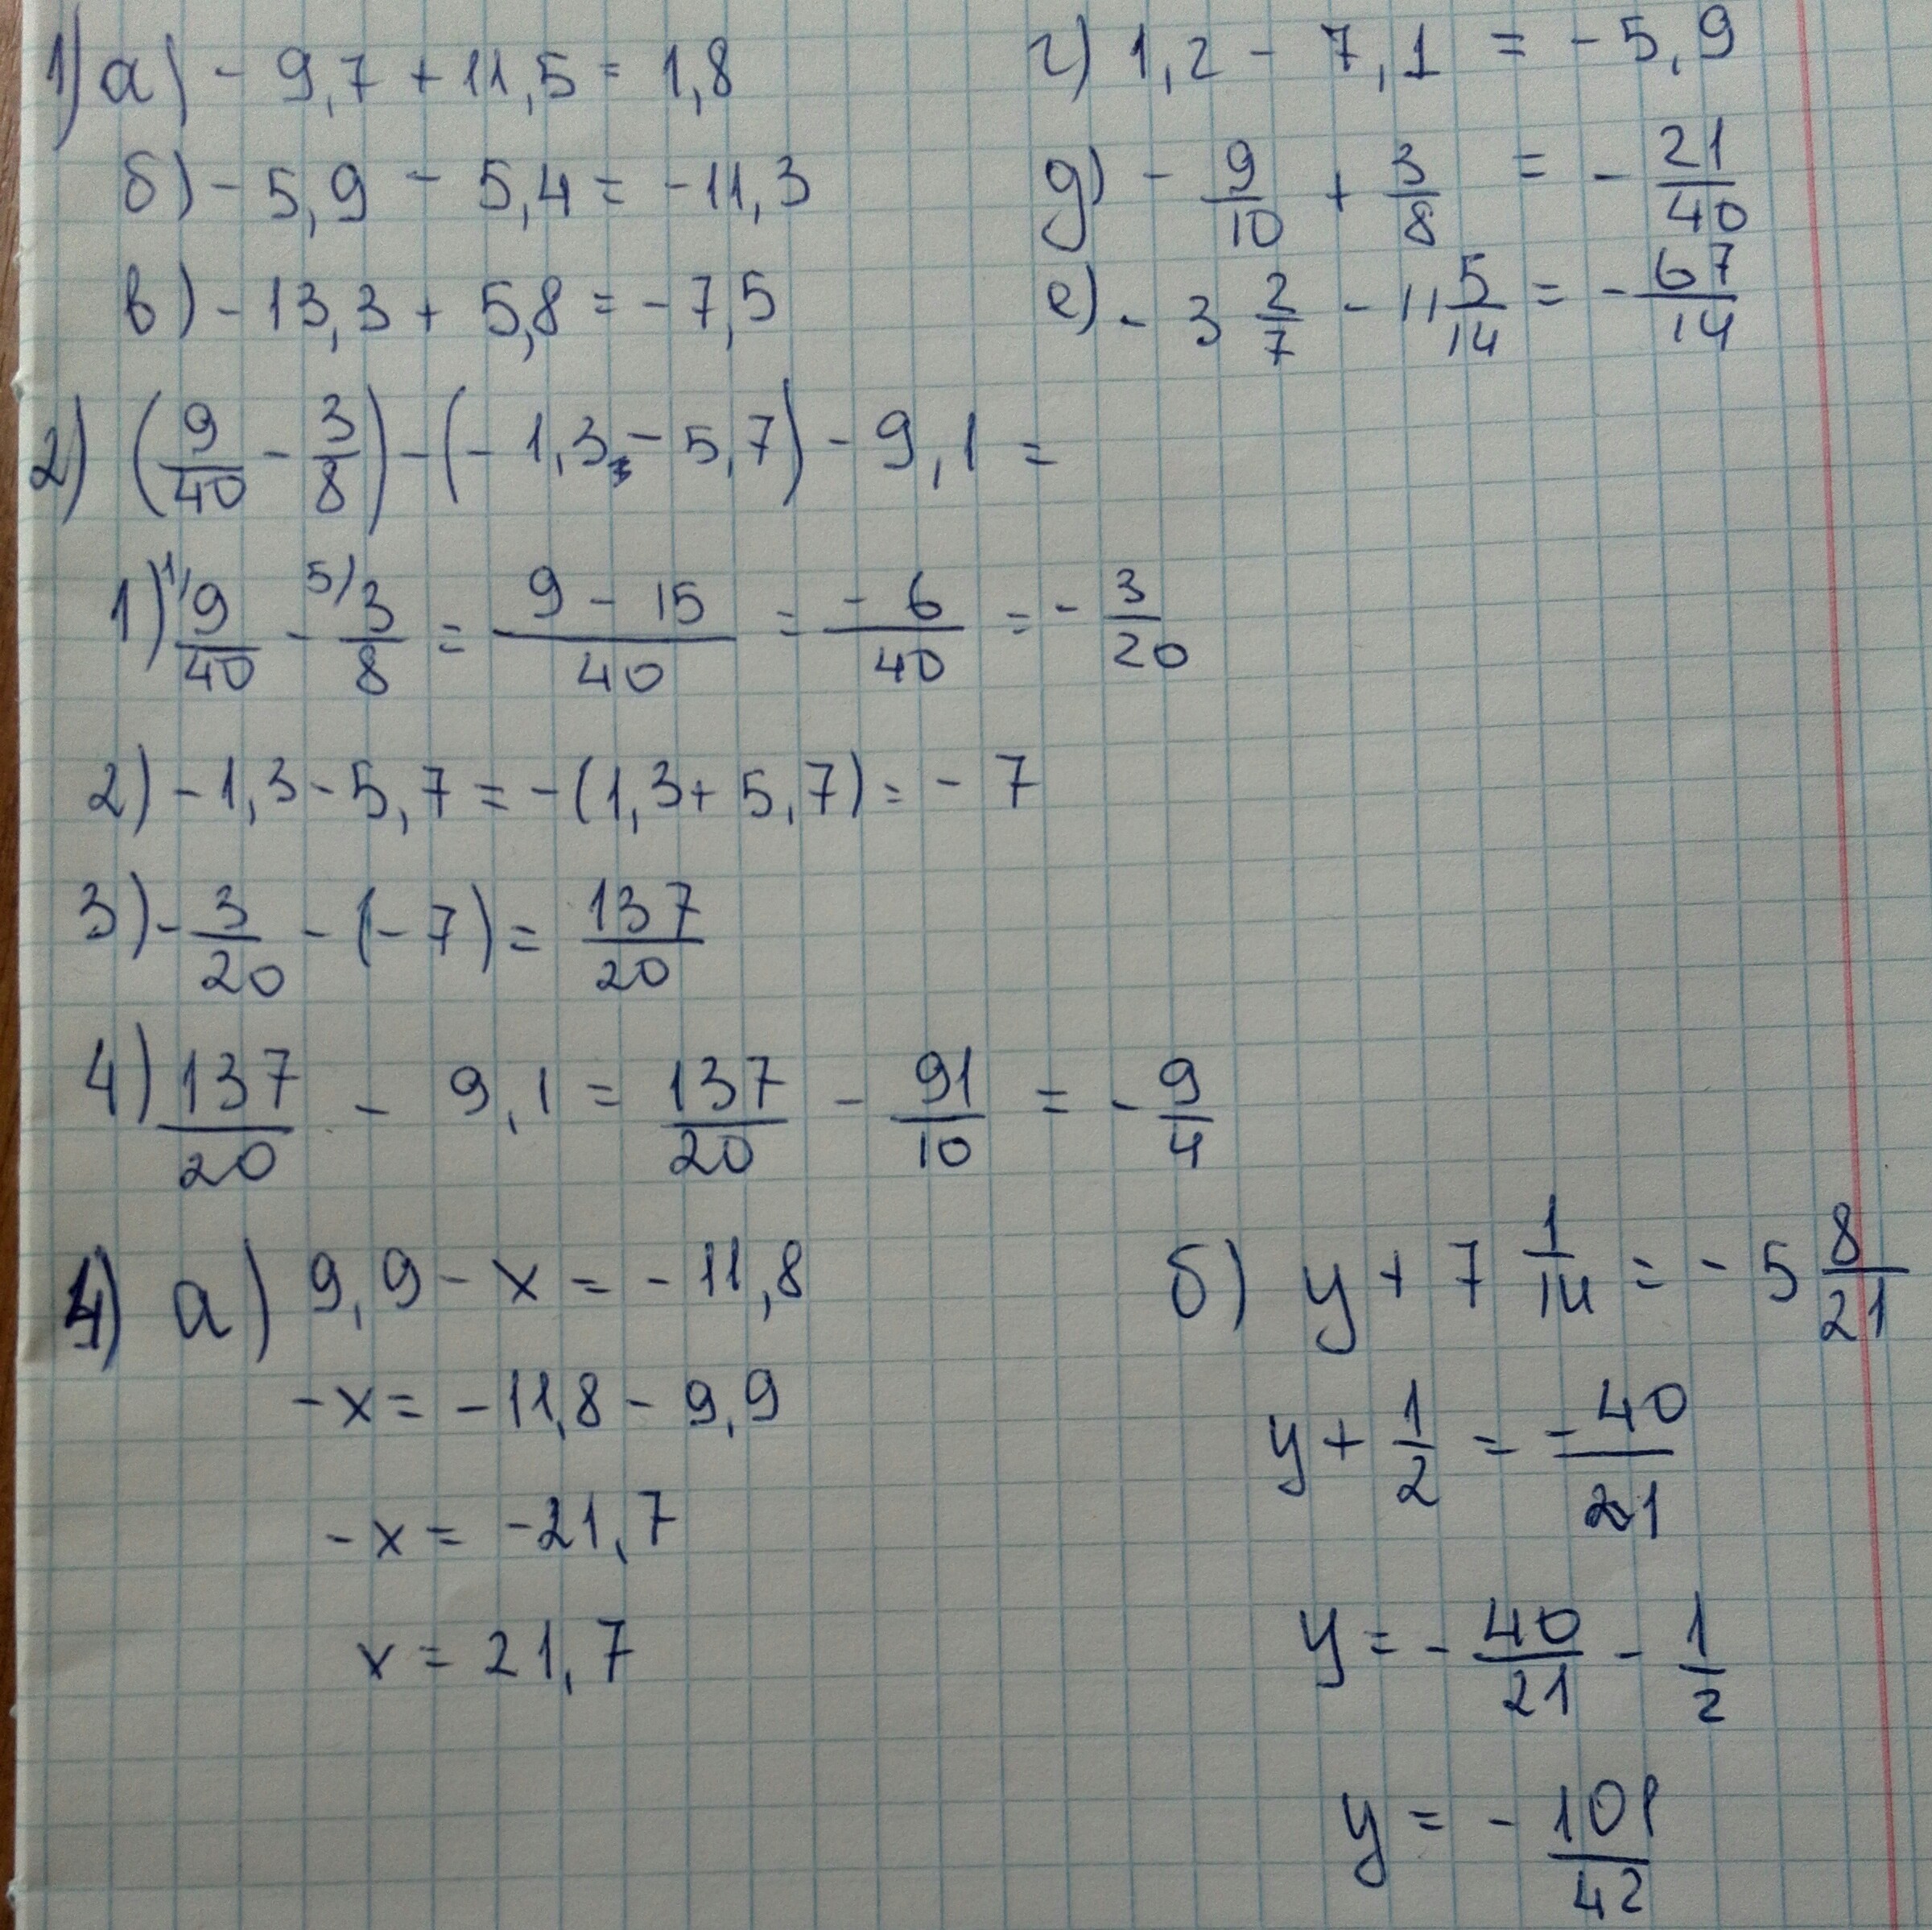 1) а) - 9,7 + 11,5 = 1,8
б) - 5,9 - 5,4 = -11,3
в) - 13,3 + 5,8 = - 7,5
г) 1,2 - 7,1 = - 5,9
д) - 9/10 + 3/8 = - 21/40
е) - 3 2/7 - 11 5/14 = - 67/14
2) (9/40 - 3/8) - (- 1,3 - 5,7) - 9,1 =
1) 1/ 9/40 - 5/ 3/8 = (9 - 15)/40 = - 6/40 = - 3/20
2) - 1,3 - 5,7 = - (1,3 + 5,7) = - 7
3) - 3/20 - (- 7) = 137/20
4) 137/20 - 9,1 = 137/20 - 91/10 = - 9/4
4) а) 9,9 - x = - 11,8
- x = - 11,8 - 9,9
- x = - 21,7
x = 21,7
б) y + 7 1/14 = - 5 8/21
y + 1/2 = - 40/21
y = - 40/21 - 1/2
y = - 101/42